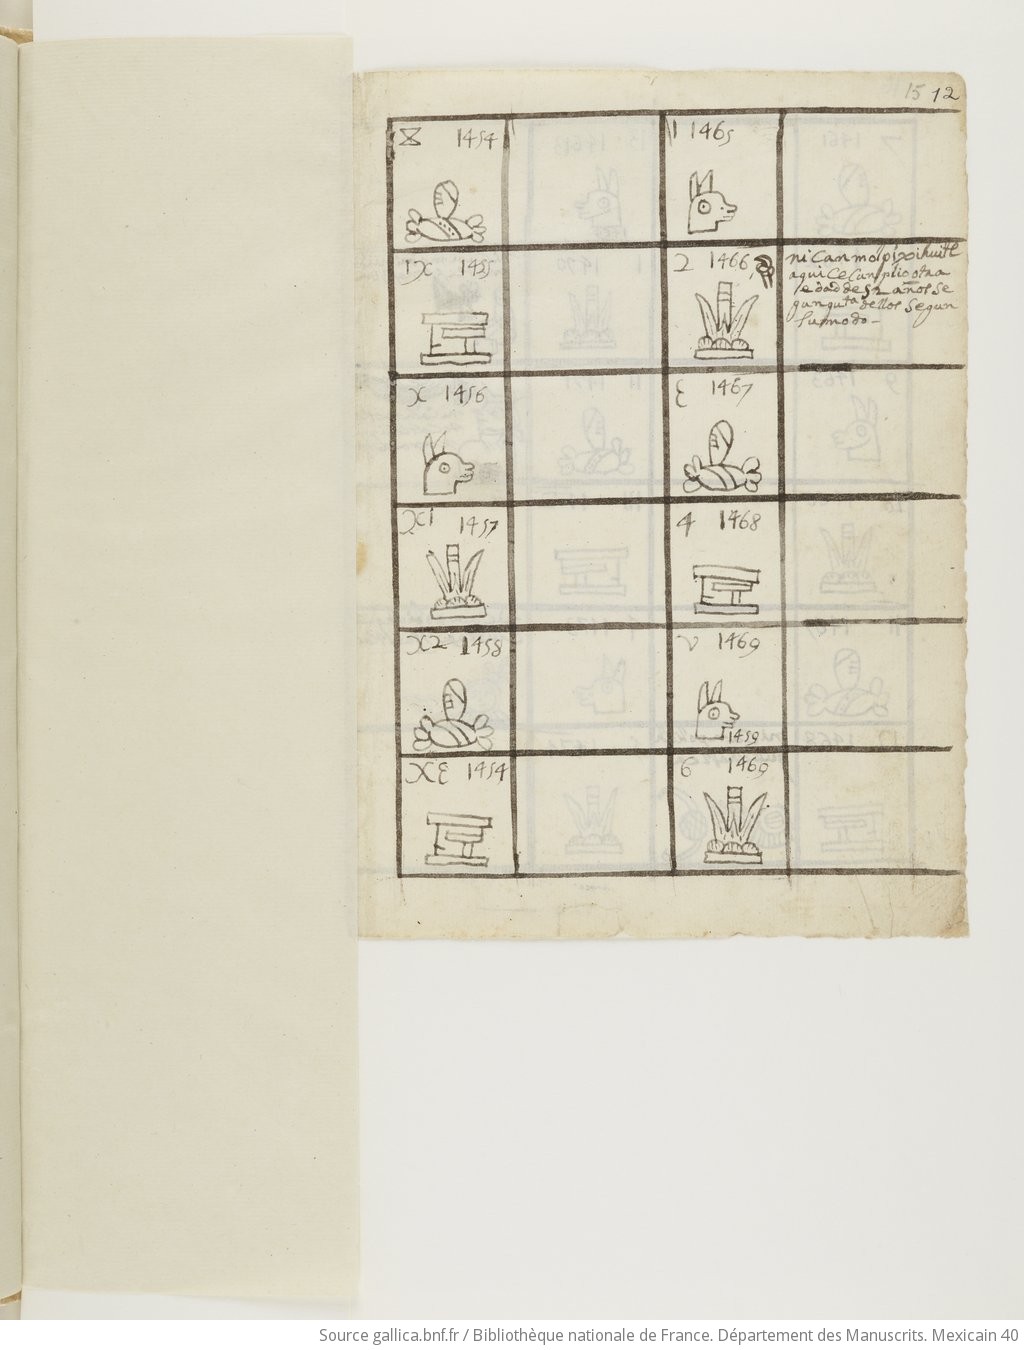 15 12
8 1454
1 1465
ix 1455
2 1466
nican molpi xihuitl
aqui se cunplio otra
edad de 52 años se
gun quta dellos segun
su modo -
x 1456
3 1467
xi 1457
4 1468
x2 1458
v 1469
1459
x3 1454
6 1469
Source gallica.bnf.fr / Bibliothèque nationale de France. Département des Manuscrits. Mexicain 40